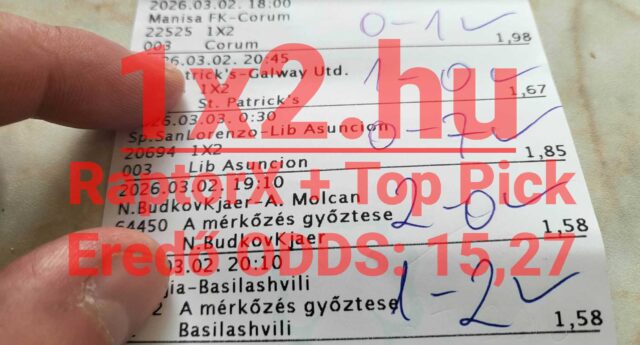 2026.03.02. 18:00
Manisa FK-Corum 0-1 ✓
22525 1X2
003 Corum 1,98
2026.03.02. 20:45
trick's-Galway Utd. 1-0 ✓
1X2 1,67
St. Patrick's
1x2.hu
026.03.03. 0:30
Sp.SanLorenzo-Lib Asuncion 0-1 ✓
20694 1X2 1,85
003 Lib Asuncion
RaptorX + Top Pick
2026.03.02. 19:10
N.BudkovKjaer-A. Molcan 2-0 ✓
64450 A mérkőzés győztese
N.BudkovKjaer 1,58
Eredő ODDS: 15,27
03.02. 20:10
gia-Basilashvili 1-2 ✓
2 A mérkőzés győztese
Basilashvili 1,58